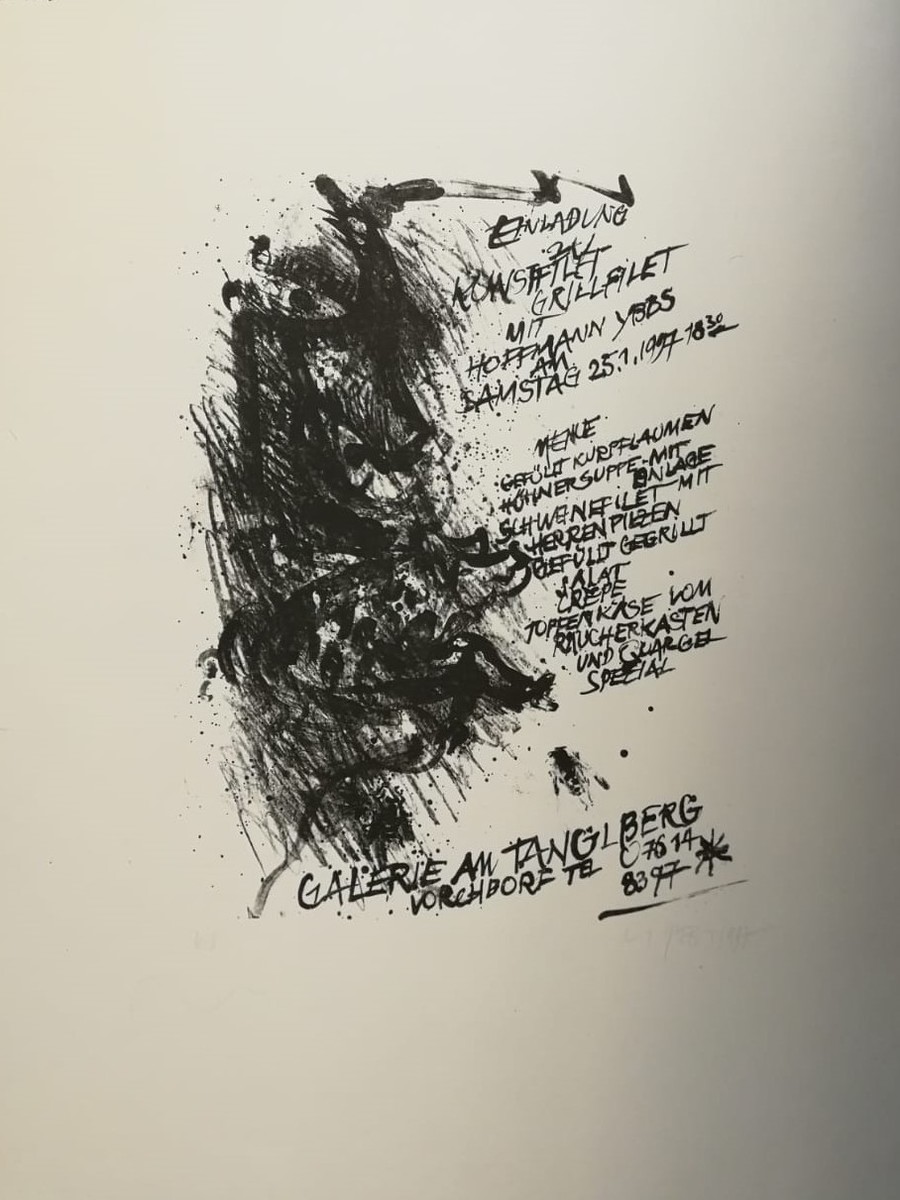 EINLADUNG
ZU
KUNSTFILET
GRILLFILET
MIT
HOFFMANN YBBS
AM
SAMSTAG 25.1.1997 18 30
MENUE
GEFÜLLT KURPFLAUMEN
HÜHNERSUPPE MIT
EINLAGE
SCHWEINEFILET MIT
HERRENPILZEN
GEFÜLLT GEGRILLT
SALAT
CREPE
TOPFENKÄSE VOM
RÄUCHERKASTEN
UND QUARGEL
SPEZIAL
GALERIE AM TANGLBERG
VORCHDORF TEL 07614
8397 *